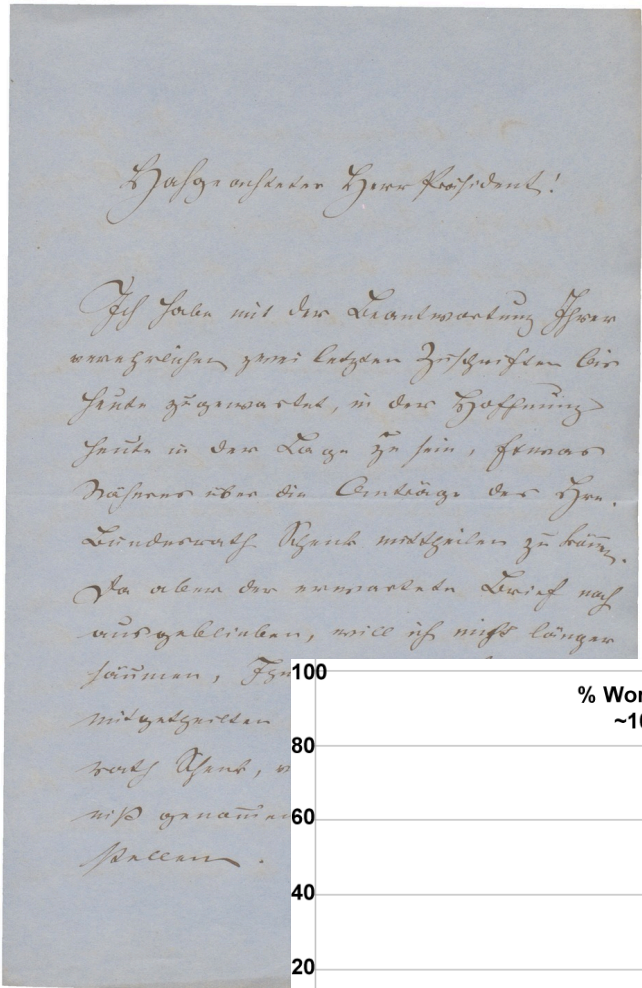 Hochgeachteter Herr Präsident!
Ich habe mit der Beantwortung Ihrer
verehrlichen zwei letzten Zuschriften bis
heute zugewartet, in der Hoffnung
heute in der Lage zu sein, Etwas
Näheres über die Anträge des Hrn.
Bundesrath Schenk mittheilen zu können.
Da aber der erwartete Brief noch
ausgeblieben, will ich nicht länger
säumen,
mitgetheilten
rath Schenk,
niß genommen
stellen.
100
% Wor
~10
80
60
40
20